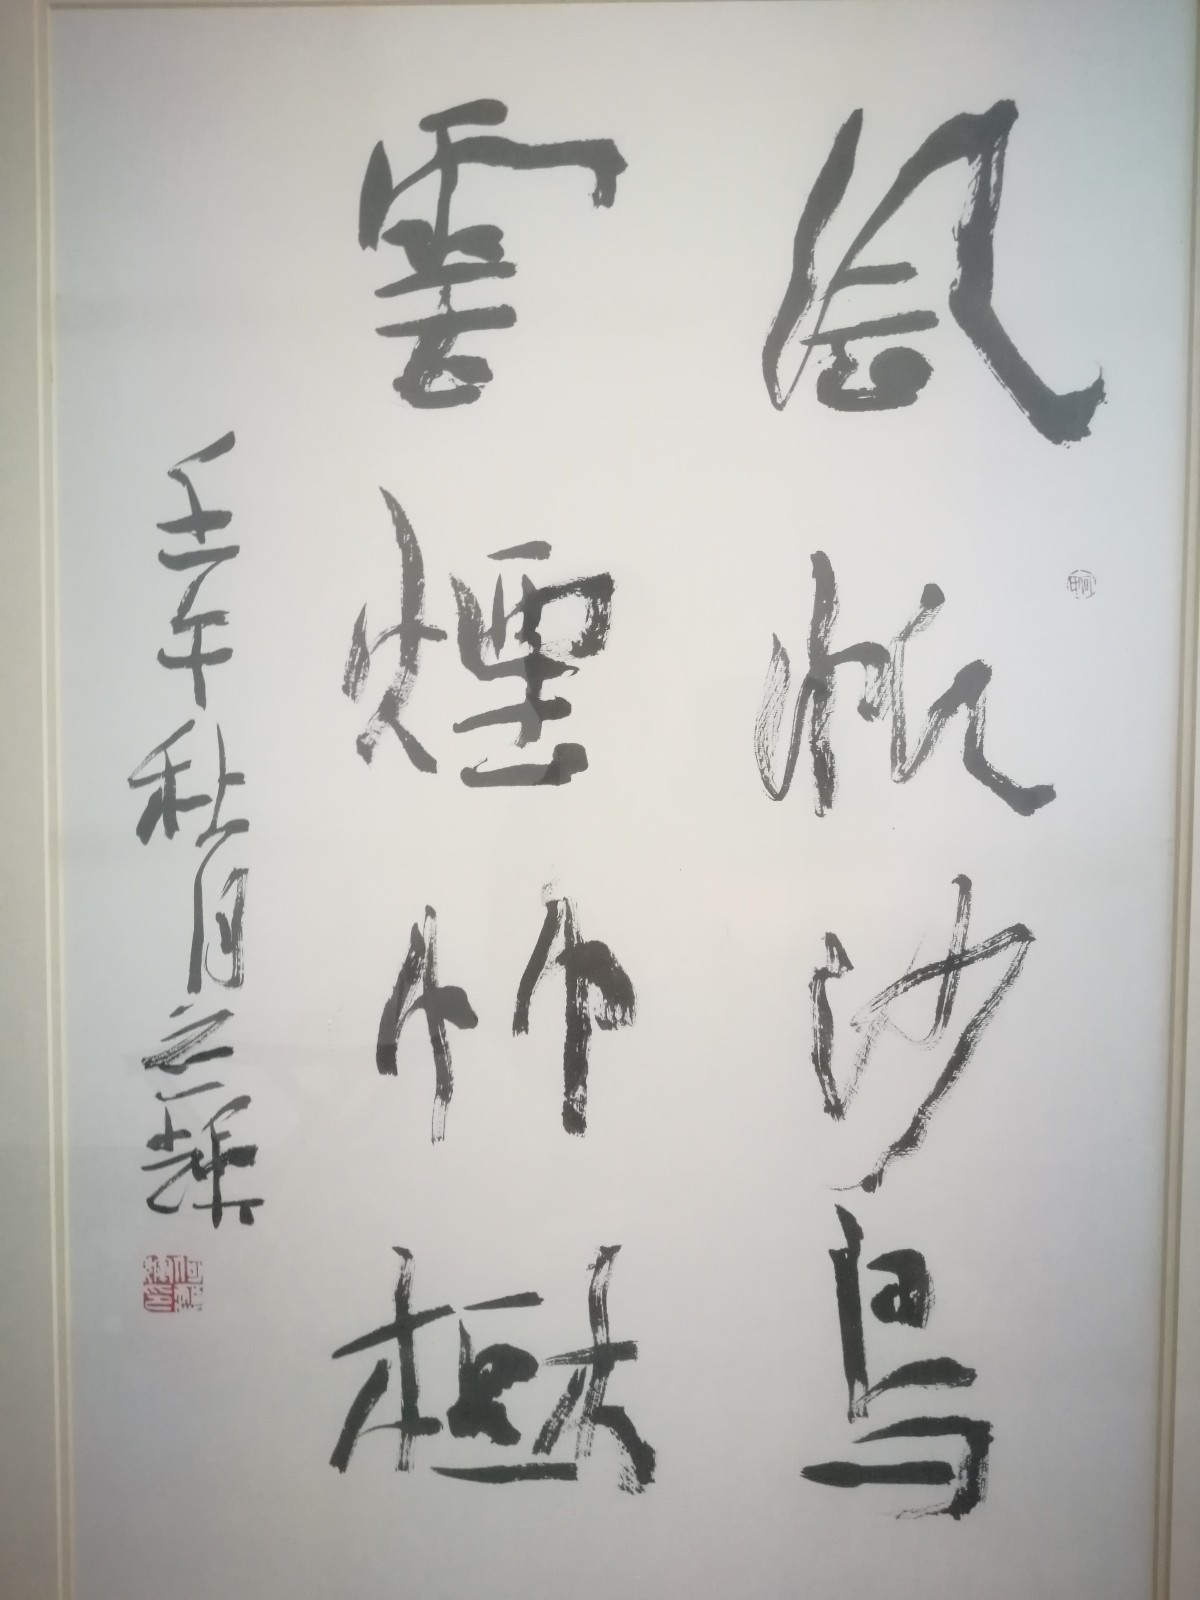 風帆沙鳥
雲煙竹樹
壬午秋月之